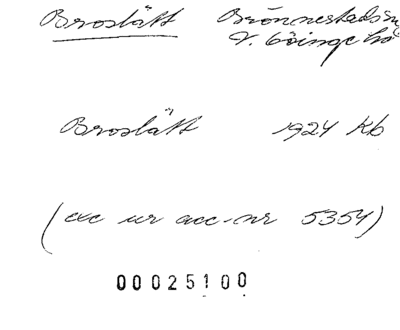 Broslätt Brönnestads sn
V. Göinge hd
Broslätt 1924 Kb
(exc ur acc-nr 5354)
00025100